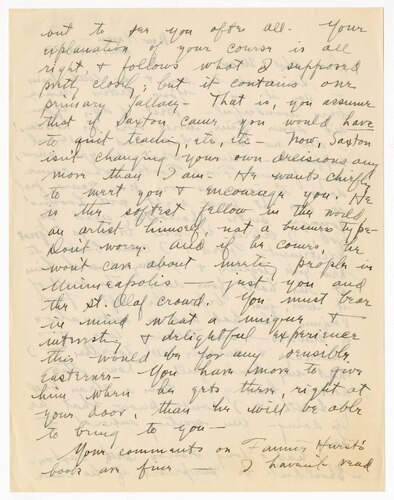 out to see you after all. Your
explanation of your course is all
right & follows what I supposed
pretty closely; but it contains one
primary fallacy - That is, you assume
that if Saxton came you would have
to quit teaching, etc, etc - Now, Saxton
isn't changing your own decisions any
more than I am - He wants chiefly
to meet you & encourage you. He
is the softest fellow in the world
an artist himself, not a business type -
Don't worry. And if he comes, he
won't care about meeting people in
Minneapolis - just you and
the St. Olaf crowd. You must bear
in mind what a unique &
interesting & delightful experience
this would be for any sensible
easterner - You have more to give
him when he gets there, right at
your door, than he will be able
to bring to you -
Your comments on Fannie Hurst's
book are fine - I haven't read